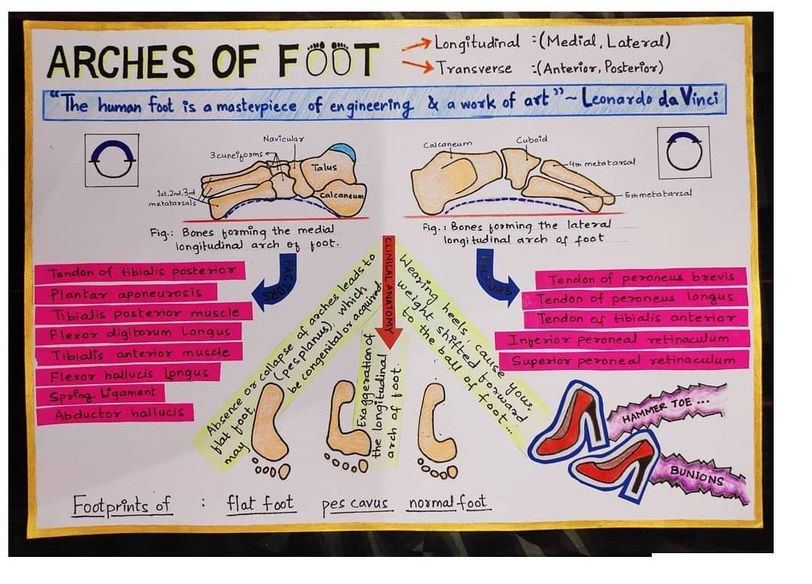 ARCHES OF FOOT
Longitudinal :(Medial, Lateral)
Transverse :(Anterior, Posterior)
"The human foot is a masterpiece of engineering & a work of art" ~ Leonardo da Vinci
Navicular
3 cuneiforms
Talus
Calcaneum
1st, 2nd, 3rd
metatarsals
Fig.: Bones forming the medial
longitudinal arch of foot.
Calcaneum
Cuboid
4th metatarsal
5th metatarsal
Fig.: Bones forming the lateral
longitudinal arch of foot
FACTORS
Tendon of tibialis posterior
Plantar aponeurosis
Tibialis posterior muscle
Flexor digitorum Longus
Tibialis anterior muscle
Flexor hallucis Longus
Spring Ligament
Abductor hallucis
CLINICAL ANATOMY
Absence or collapse of arches leads to
flat foot (pes planus) which
may be congenital or acquired
Exaggeration of
the longitudinal
arch of foot.
Wearing heels, cause your
weight shifted forward
to the ball of foot...
Tendon of peroneus brevis
Tendon of peroneus longus
Tendon of tibialis anterior
Inferior peroneal retinaculum
Superior peroneal retinaculum
HAMMER TOE ...
BUNIONS
Footprints of : flat foot pes cavus normal foot